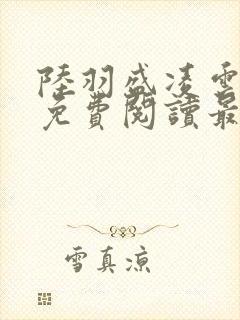 陸羽盛凌雲
免費閱讀最
雪真凉